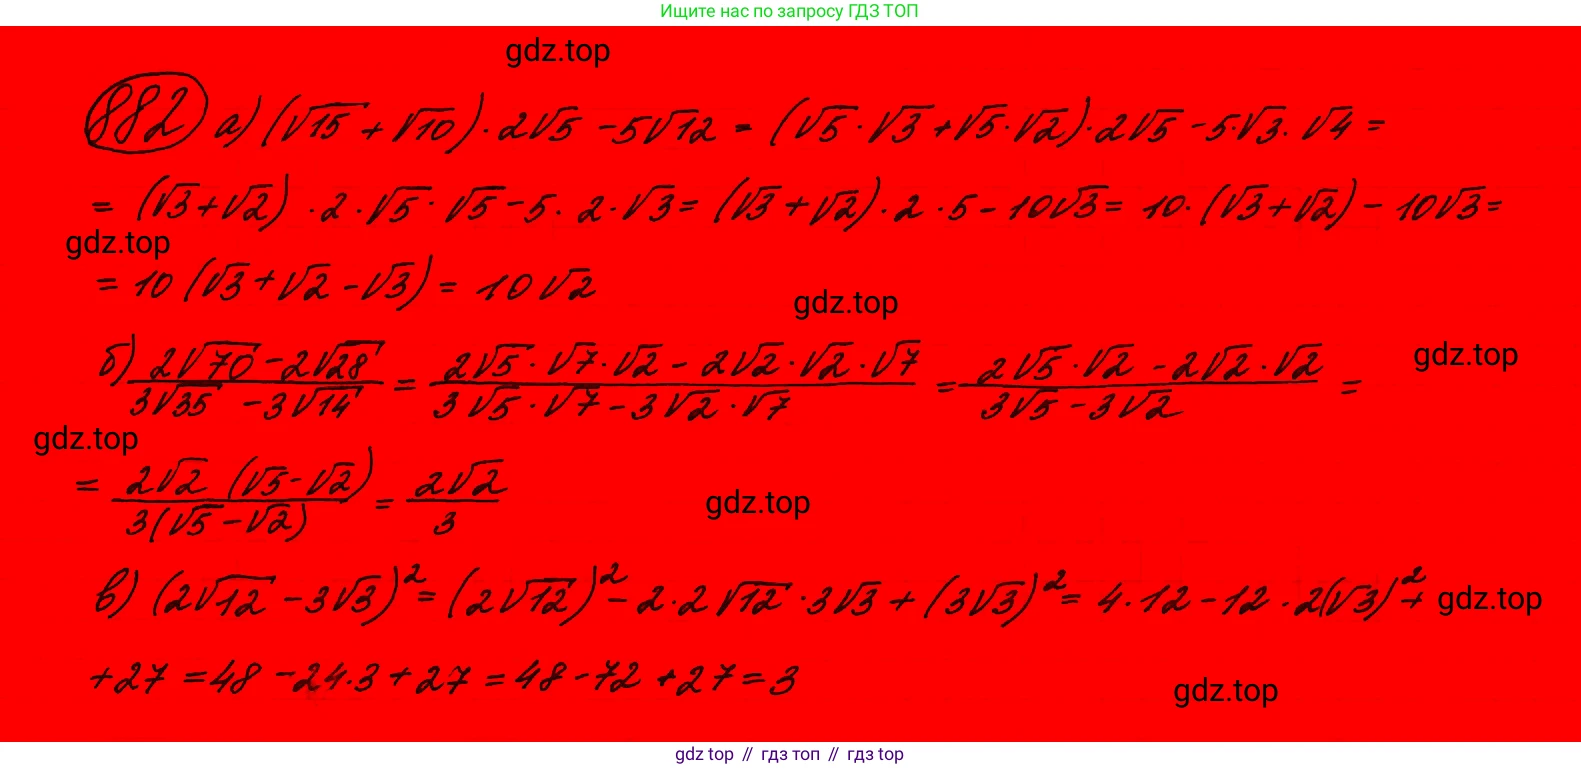 Ищите нас по запросу ГДЗ ТОП
gdz.top
882 а) (√15 + √10) · 2√5 - 5√12 = (√5 · √3 + √5 · √2) · 2√5 - 5·√3 · √4 =
= (√3 + √2) · 2 · √5 · √5 - 5 · 2 · √3 = (√3 + √2) · 2 · 5 - 10√3 = 10 · (√3 + √2) - 10√3 =
gdz.top
= 10 (√3 + √2 - √3) = 10 √2
gdz.top
б) (2√70 - 2√28)/(3√35 - 3√14) = (2√5 · √7 · √2 - 2√2 · √2 · √7)/(3√5 · √7 - 3√2 · √7) = (2√5 · √2 - 2√2 · √2)/(3√5 - 3√2) =
gdz.top
gdz.top
= (2√2 (√5 - √2))/(3(√5 - √2)) = (2√2)/3
gdz.top
в) (2√12 - 3√3)² = (2√12)² - 2 · 2√12 · 3√3 + (3√3)² = 4 · 12 - 12 · 2(√3)² +
gdz.top
+ 27 = 48 - 24 · 3 + 27 = 48 - 72 + 27 = 3
gdz.top
gdz top // гдз топ // гдз top